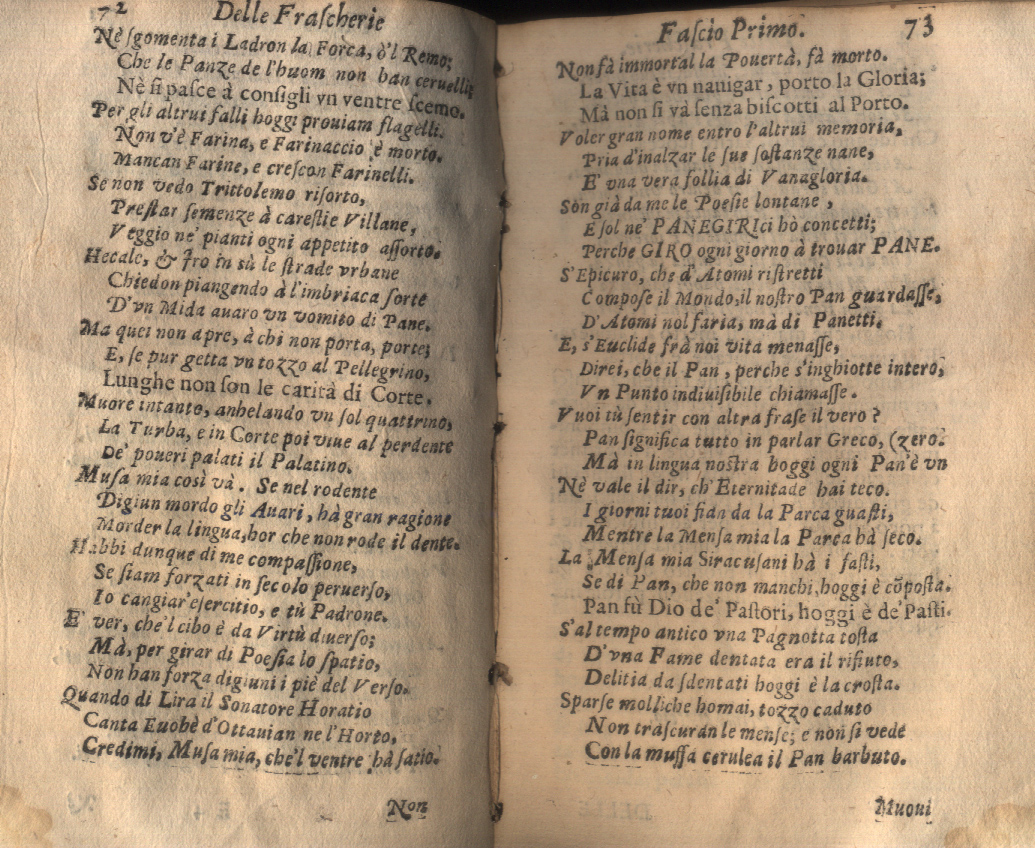 72 Delle Fraſcherie
Nè ſgomenta i Ladron la Forca, ò'l Remo;
Che le Panze de l'huom non han ceruelli;
Nè ſi paſce à conſigli vn ventre ſcemo.
Per gli altrui falli hoggi prouiam flagelli.
Non v'è Farina, e Farinaccio è morto.
Mancan Farine, e creſcon Farinelli.
Se non vedo Trittolemo riſorto,
Preſtar ſemenze à careſtie Villane,
Veggio ne' pianti ogni appetito aſſorto.
Hecale, & Iro in sù le ſtrade vrbane
Chiedon piangendo à l'imbriaca ſorte
D'vn Mida auaro vn vomito di Pane.
Ma quei non apre, à chi non porta, porte;
E, ſe pur getta vn tozzo al Pellegrino,
Lunghe non ſon le carità di Corte.
Muore intanto, anhelando vn ſol quattrino,
La Turba, e in Corte poi viue al perdente
De' poueri palati il Palatino.
Muſa mia così và. Se nel rodente
Digiun mordo gli Auari, hà gran ragione
Morder la lingua, hor che non rode il dente.
Habbi dunque di me compaſſione,
Se ſiam forzati in ſecolo peruerſo,
Io cangiar'eſercitio, e tù Padrone.
E' ver, che'l cibo è da Virtù diuerſo;
Mà, per girar di Poeſia lo ſpatio,
Non han forza digiuni i piè del Verſo.
Quando di Lira il Sonatore Horatio
Canta Euohè d'Ottauian ne l'Horto,
Credimi, Muſa mia, che'l ventre hà ſatio.
Non
Faſcio Primo. 73
Non fà immortal la Pouertà, fà morto.
La Vita è vn nauigar, porto la Gloria;
Mà non ſi và ſenza biſcotti al Porto.
Voler gran nome entro l'altrui memoria,
Pria d'inalzar le ſue ſoſtanze nane,
E' vna vera follia di Vanagloria.
Son già da me le Poeſie lontane,
E ſol ne' PANEGIRIci hò concetti;
Perche GIRO ogni giorno à trouar PANE.
S'Epicuro, che d'Atomi riſtretti
Compoſe il Mondo, il noſtro Pan guardaſſe,
D'Atomi nol faria, mà di Panetti.
E, s'Euclide frà noi vita menaſſe,
Direi, che il Pan, perche s'inghiotte intero,
Vn Punto indiuiſibile chiamaſſe.
Vuoi tù ſentir con altra fraſe il vero?
Pan ſignifica tutto in parlar Greco, (zero.
Mà in lingua noſtra hoggi ogni Pan'è vn
Nè vale il dir, ch'Eternitade hai teco.
I giorni tuoi fian da la Parca guaſti,
Mentre la Menſa mia la Parca hà ſeco.
La Menſa mia Siracuſani hà i faſti,
Se di Pan, che non manchi, hoggi è cõpoſta.
Pan fù Dio de' Paſtori, hoggi è de' Paſti.
S'al tempo antico vna Pagnotta toſta
D'vna Fame dentata era il rifiuto,
Delitia da ſdentati hoggi è la croſta.
Sparſe molliche homai, tozzo caduto
Non traſcuran le menſe; e non ſi vede
Con la muffa cerulea il Pan barbuto.
Muoui